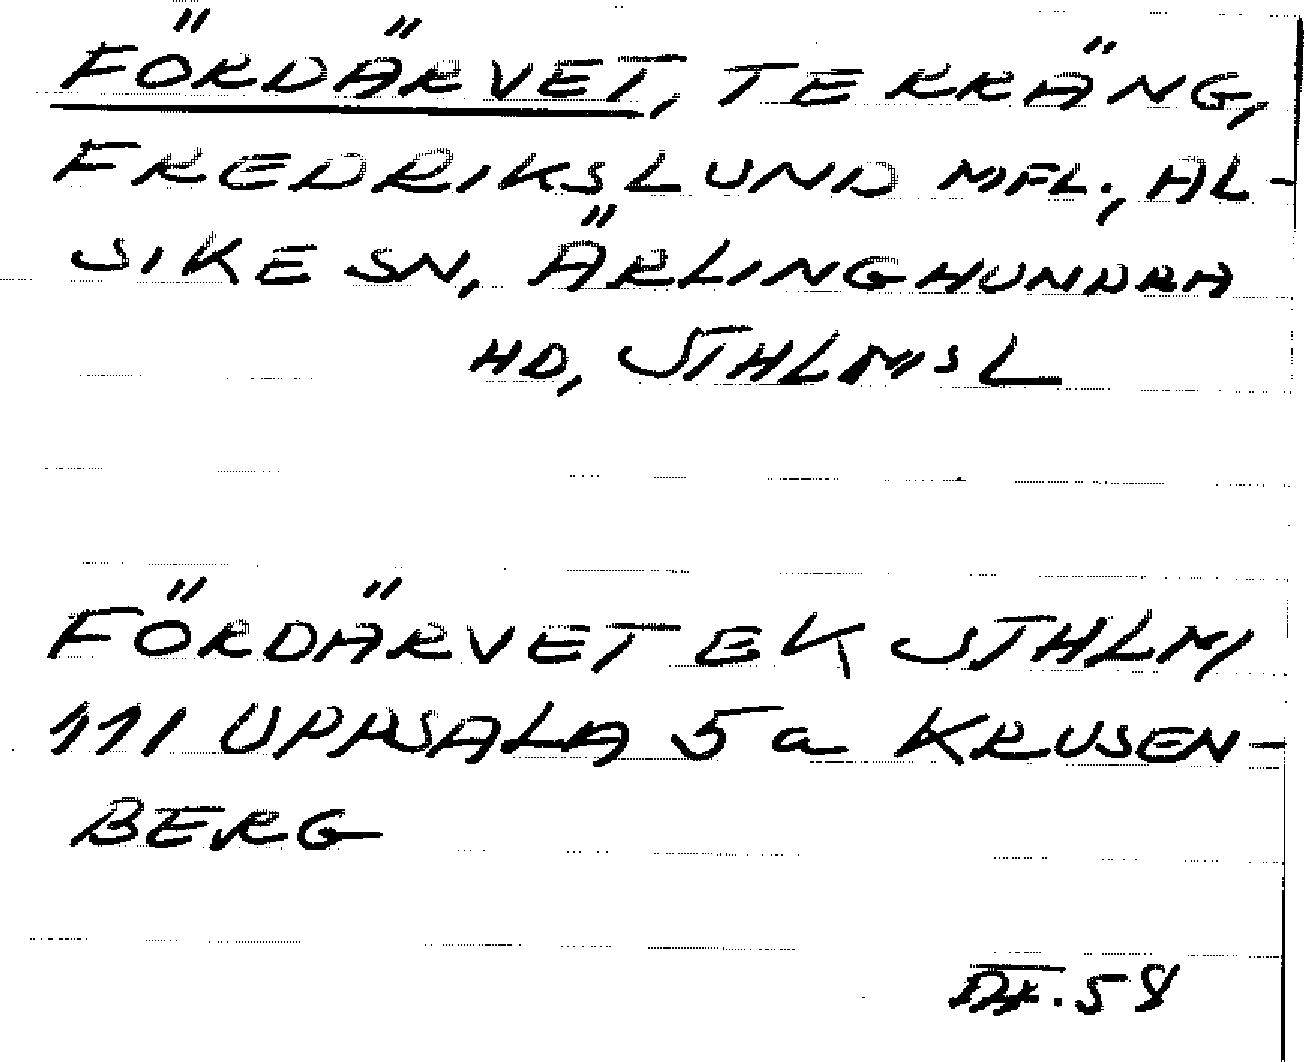 FÖRDÄRVET, TERRÄNG,
FREDRIKSLUND MFL., AL-
SIKE SN, ÄRLINGHUNDRA
HD, STHLMSL
FÖRDÄRVET EK STHLM
111 UPPSALA 5a KRUSEN-
BERG
58